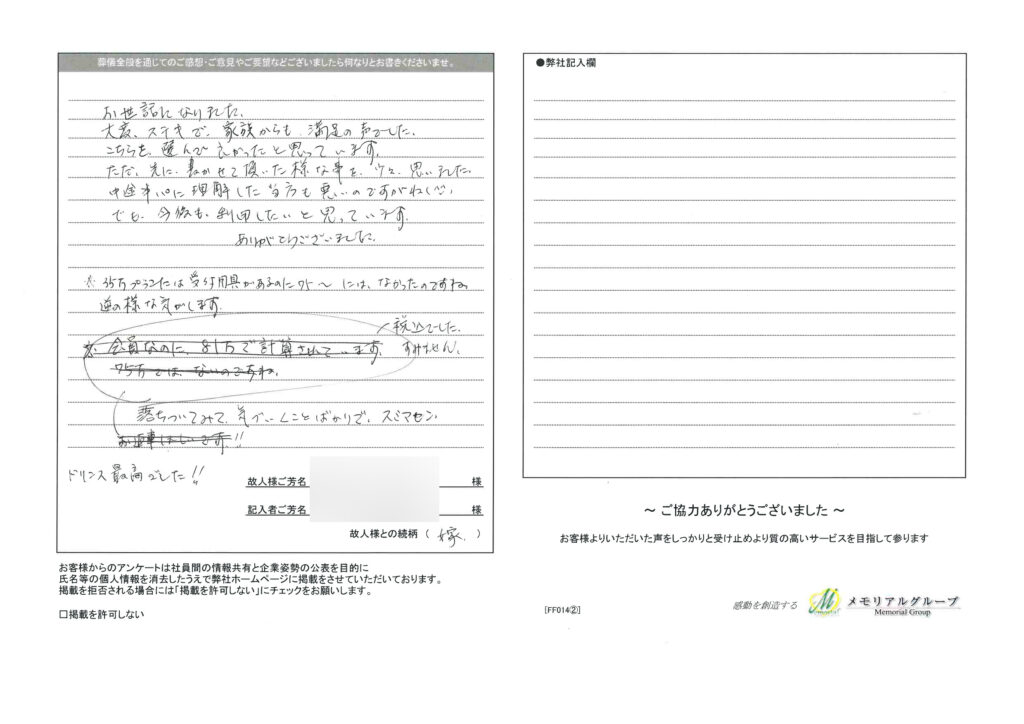 葬儀全般を通じてのご感想・ご意見やご要望などございましたら何なりとお書きくださいませ。
お世話になりました。
大変、ステキで、家族からも、満足の声でした。
こちらを、選んで良かったと思っています。
ただ、先に、書かせて頂いた様な事を、少々、思いました。
中途半パに理解した当方も悪いのですがね(^^;
でも、今後も、利用したいと思っています。
ありがとうございました。
※ 35万プランには受付用具があるのに75〜には、なかったのですね
逆の様な気がします。
税込でした。
※ 会員なのに、81万で計算されています。 すみません。
75万では、ないのですね。
落ちついてみて、気づくことばかりで、スミマセン。
ドリンス最高でした!!
故人様ご芳名 様
記入者ご芳名 様
故人様との続柄 ( 嫁 )
お客様からのアンケートは社員間の情報共有と企業姿勢の公表を目的に
氏名等の個人情報を消去したうえで弊社ホームページに掲載をさせていただいております。
掲載を拒否される場合には「掲載を許可しない」にチェックをお願いします。
□掲載を許可しない
●弊社記入欄
〜 ご協力ありがとうございました 〜
お客様よりいただいた声をしっかりと受け止めより質の高いサービスを目指して参ります
[FF014②]
感動を創造する
メモリアルグループ
Memorial Group